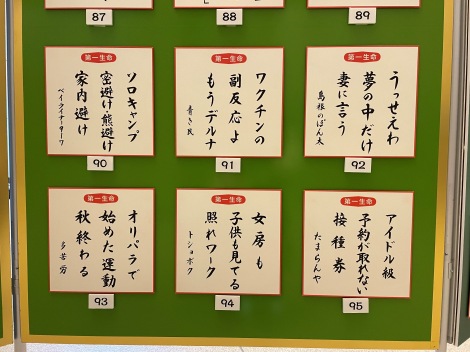 87
88
89
第一生命
ソロキャンプ
密避け・熊避け
家内避け
ベイクイナー9ー7
90
第一生命
ワクチンの
副反応よ
もうデルナ
青き民
91
第一生命
うっせえわ
夢の中だけ
妻に言う
島根のぽん太
92
第一生命
オリパラで
始めた運動
秋終わる
多苦労
93
第一生命
女房も
子供も見てる
照れワーク
トショボク
94
第一生命
アイドル級
予約が取れない
接種券
たまらんや
95